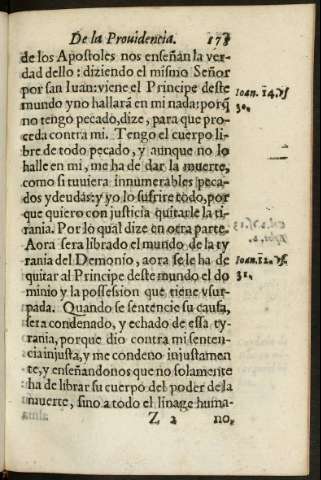 De la Prouidencia. 178
de los Apostoles nos enseñan la ver-
dad dello: diziendo el mismo Señor
por san Iuan: viene el Principe deste
mundo y no hallará en mi nada: porq̃
no tengo pecado, dize, para que pro-
ceda contra mi. Tengo el cuerpo li-
bre de todo pecado, y aunque no lo
halle en mi, me ha de dar la muerte,
como si tuuiera innumerables peca-
dos y deudas: y yo lo sufrire todo, por
que quiero con justicia quitarle la ti-
rania. Por lo qual dize en otra parte.
Aora sera librado el mundo de la ty
rania del Demonio, aora se le ha de
quitar al Principe deste mundo el do
minio y la possession que tiene vsur-
pada. Quando se sentencie su causa,
sera condenado, y echado de essa ty-
rania, porque dio contra mi senten-
cia injusta, y me condeno injustamen
te, y enseñandonos que no solamente
ha de librar su cuerpo del poder de la
muerte, sino a todo el linage huma-
Z 2 no,
Ioan. 14. vs
30.
Ioan. 12. vs.
31.